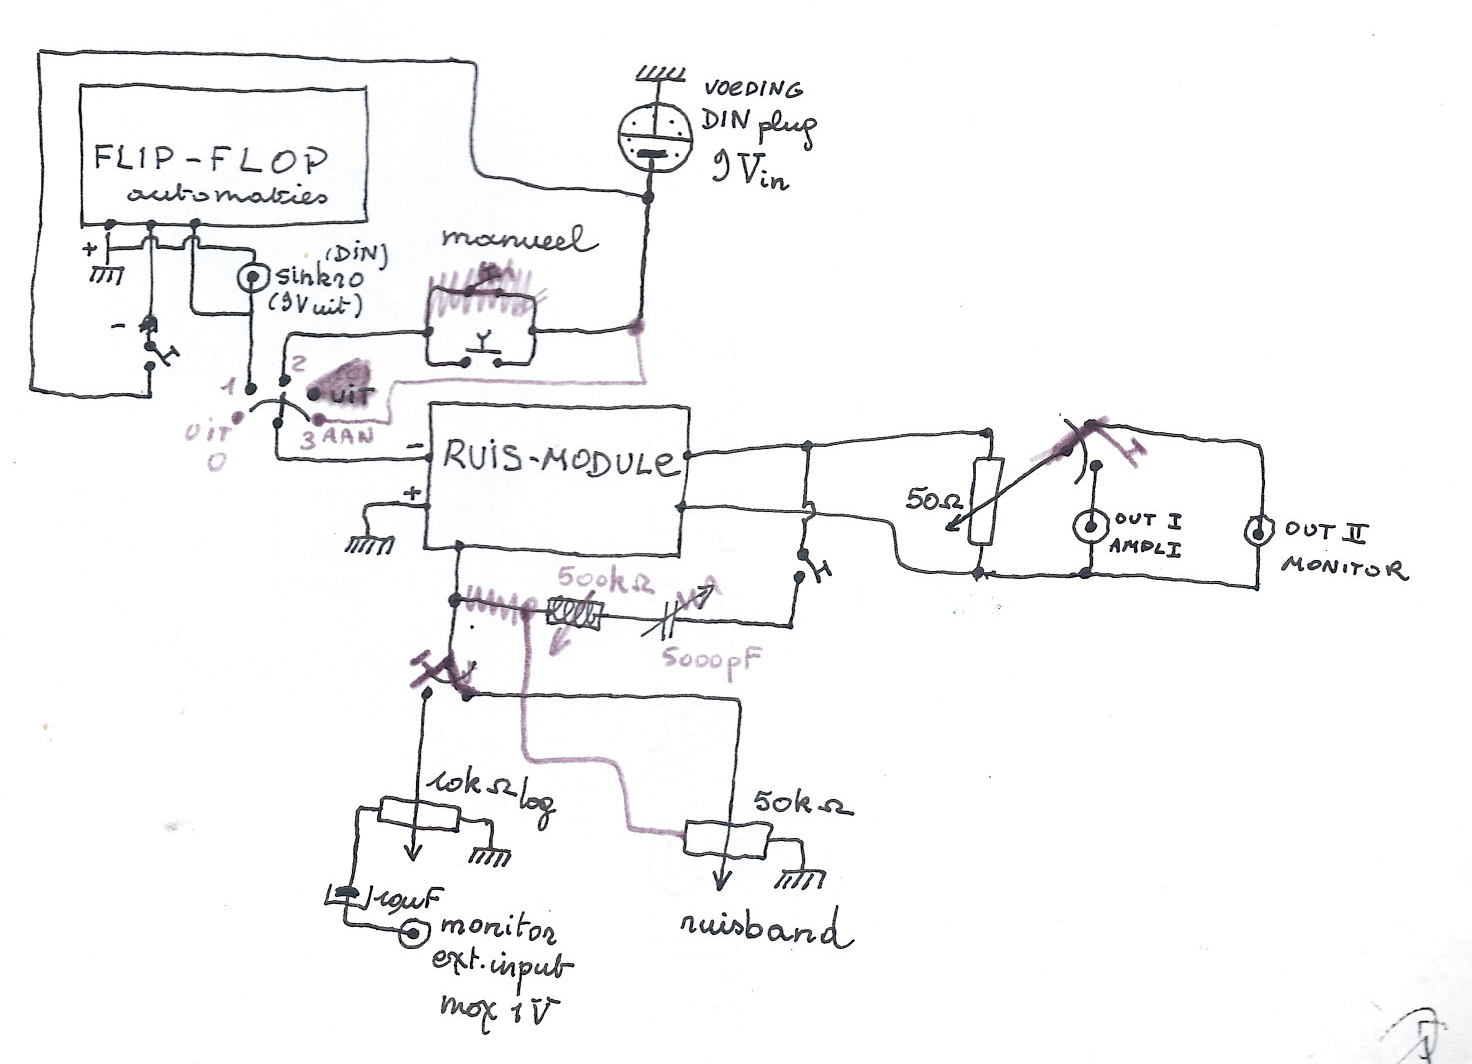 VOEDING
DIN plug
9 Vin
FLIP-FLOP
automaties
+
(DIN)
sinkro
(9V uit)
manueel
-
1
2
UIT
UIT
0
3 AAN
-
+
RUIS-MODULE
50Ω
OUT I
AMPLI
OUT II
MONITOR
500kΩ
5000pF
10kΩ log
50kΩ
10µF
monitor
ext. input
max 1V
ruisband